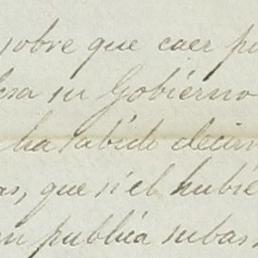 sobre que caer
su Gobierno
ha sabido
que si el hubie
publica subas